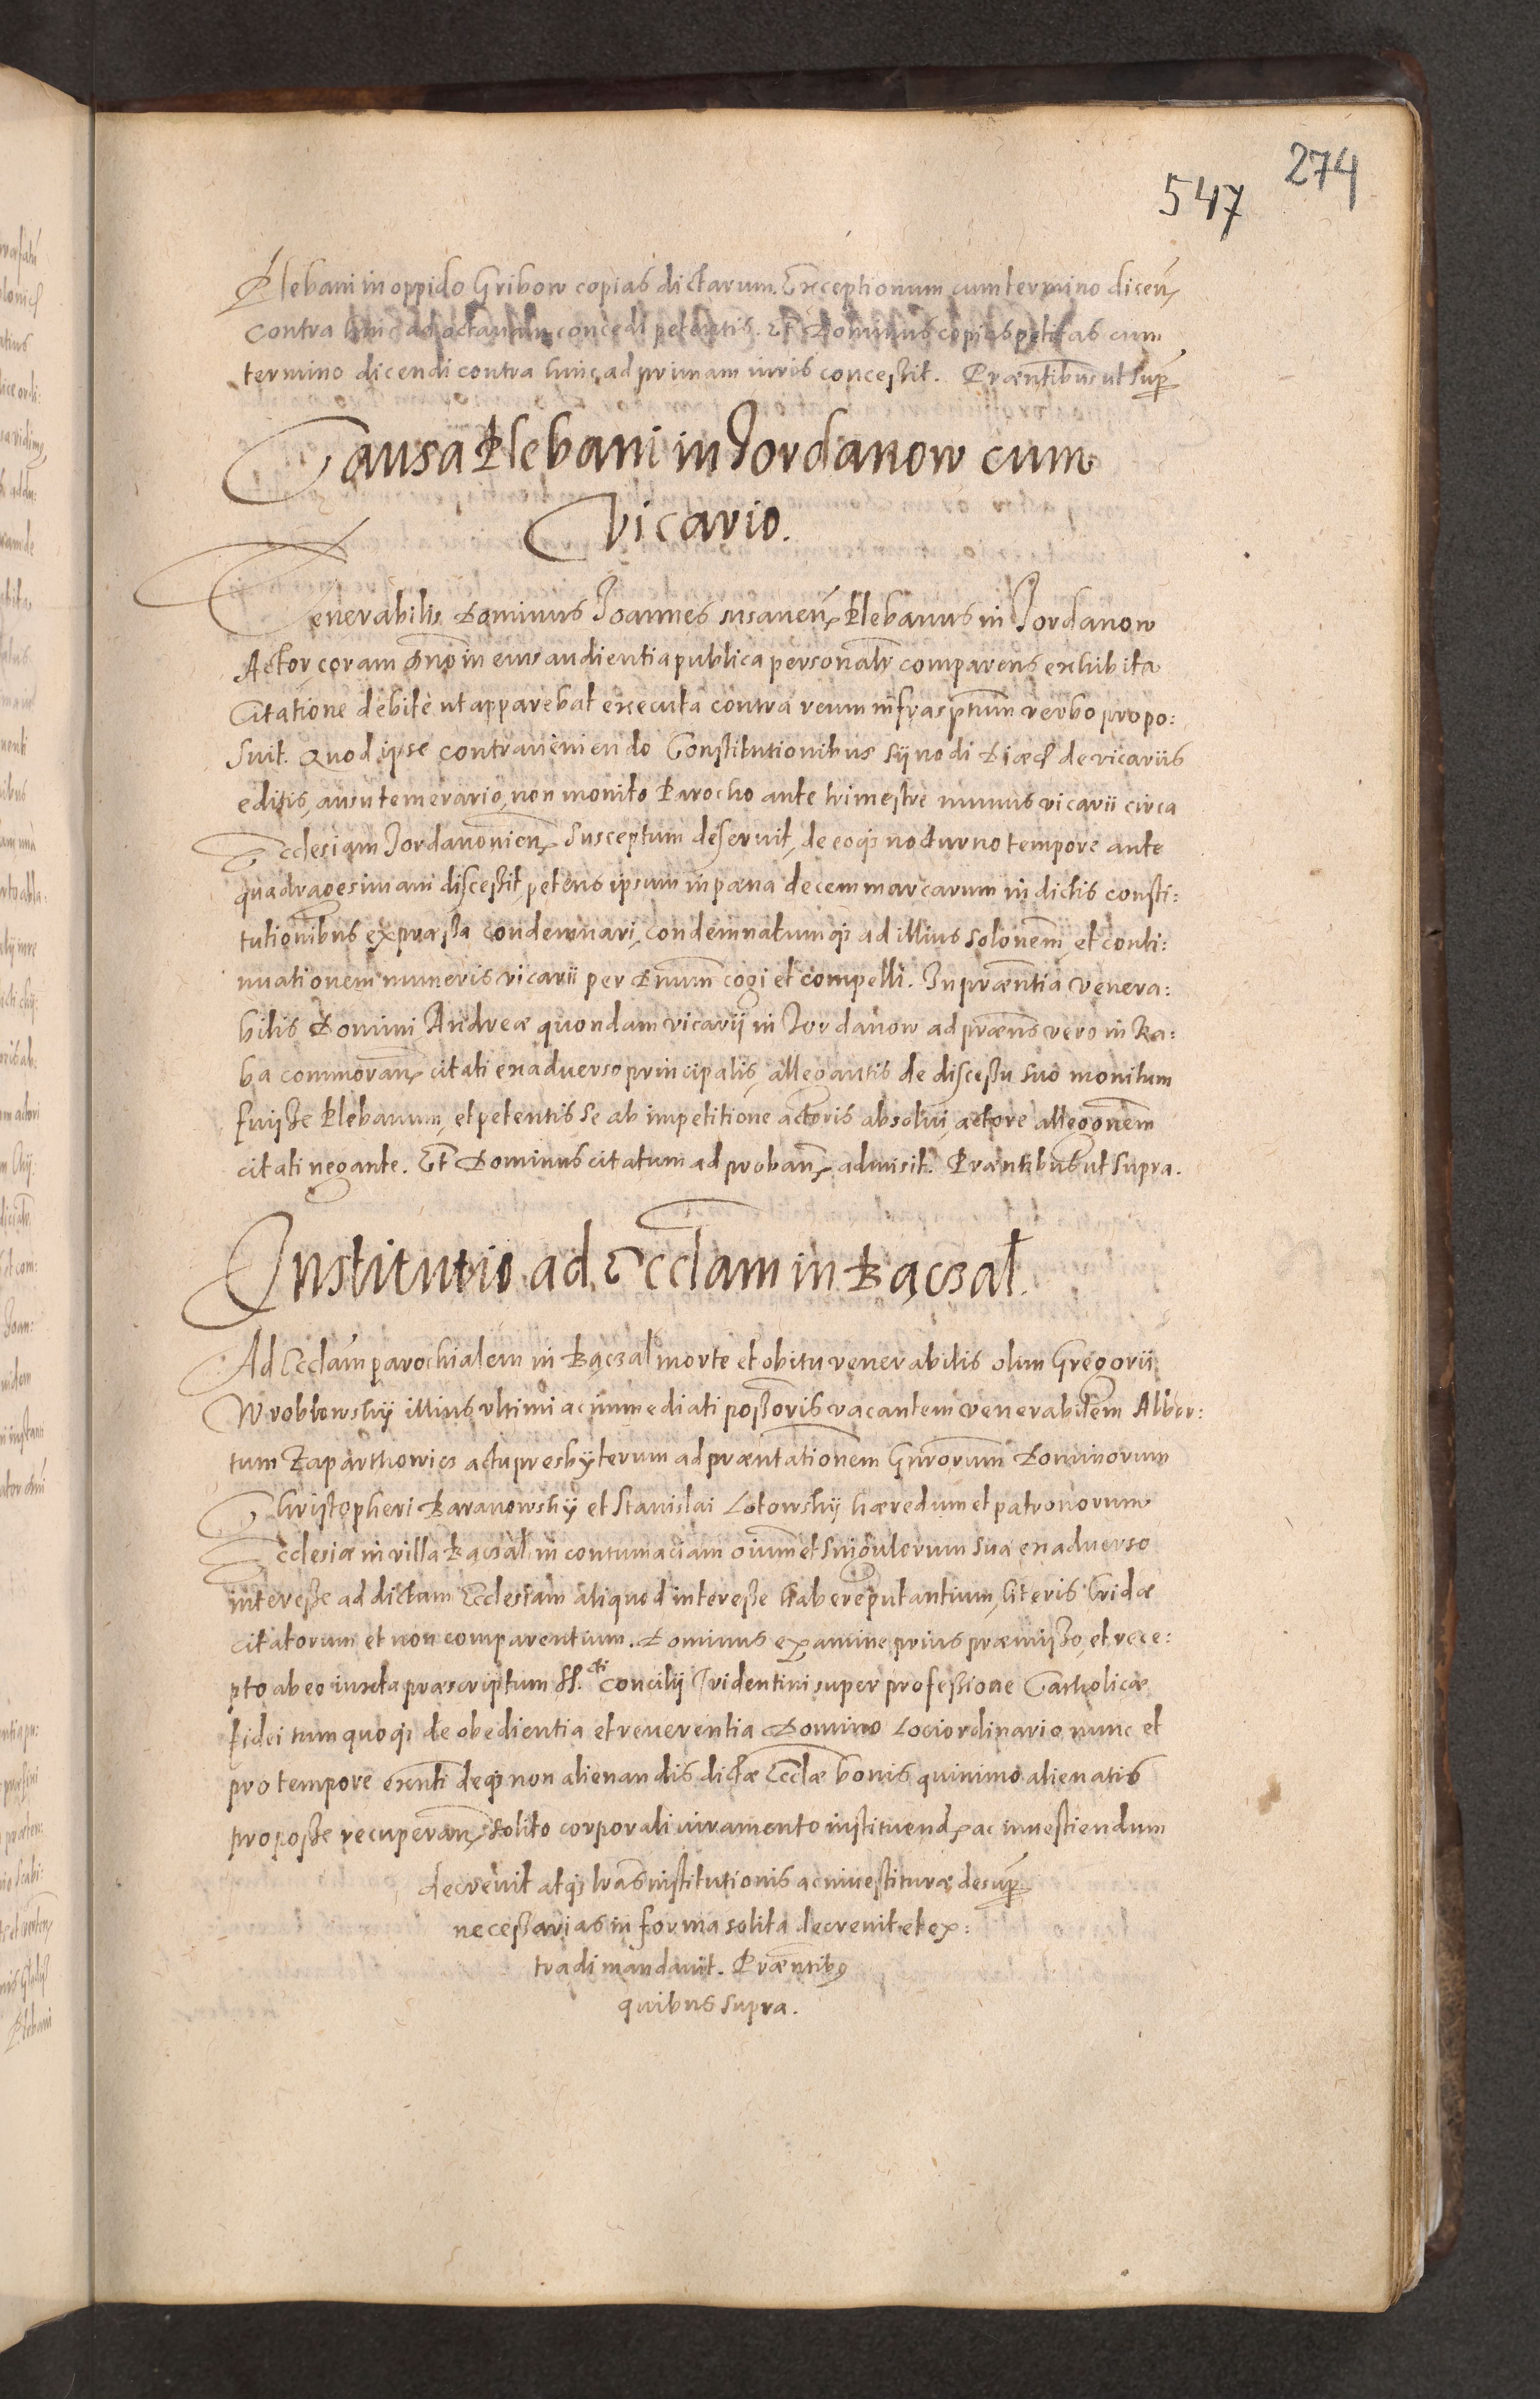 274
547
Plebani in oppido Gribow copias dictarum Exceptionum cum termino dicen̄
contra hinc ad octavam concedi petentis. Et Dominus copias petitas cum
termino dicendi contra hinc ad primam iuris concessit. Præntibus ut sup̄
Causa Plebani in Jordanow cum
vicario.
Venerabilis Dominus Joannes Plebanus in Jordanow
Actor coram dno in eius audientia publica personalr comparens exhibita
Citatione debite ut apparebat executa contra reum infrasptum verbo propo:
suit. Quod ipse contraveniendo Constitutionibus synodi Diæc de vicariis
editis, ausu temerario, non monito Parocho ante trimestre munus vicarii circa
Ecclesiam Jordanovien̄ susceptum deseruit, de eoq; nocturno tempore ante
quadragesimam discessit, petens ipsum in pæna decem marcarum in dictis consti:
tutionibus expressa condemnari, condemnatumq; ad illius solonem et conti:
nuationem muneris vicarii per Dnum cogi et compelli. In præntia venera:
bilis Domini Andreæ quondam vicarij in Jordanow ad præns vero in Ra:
ba commoran̄ citati ex adverso principalis, allegantis de discessu suo monitum
fuisse Plebanum, et petentis se ab impetitione actoris absolvi, actore allegonem
citati negante. Et Dominus citatum ad proban̄ admisit. Præntibus ut supra.
Institutio ad Ecclam in Bączal.
Ad Ecclam parochialem in Bączal morte et obitu venerabilis olim Gregorii
Wroblowskij illius ultimi ac immediati possoris vacantem venerabilem Alber:
tum Zaparthowicz actu presbyterum ad præntationem Gnrorum Dominorum
Christopheri Baranowskij et Stanislai Lotowskij hæredum et patronorum
Ecclesiæ in villa Bączal in contumaciam oium et singulorum sua ex adverso
interesse ad dictam Ecclesiam aliquod interesse habere putantium, literis Cridæ
citatorum et non comparentium. Dominus examine prius præmisso, et rece:
pto ab eo iuxta præscriptum SS.cti Concilij Tridentini super professione Catholicæ
fidei tum quoq; de obedientia et reverentia Domino Loci ordinario nunc et
pro tempore exnti deq; non alienandis dictæ Ecclæ bonis quinimo alienatis
pro posse recuperan̄ solito corporali iuramento instituend ac investiendum
decrevit atq; lras institutionis ac investituræ desup̄
necessarias in forma solita decrevit et ex:
tradi mandavit. Præntibq
quibus supra.